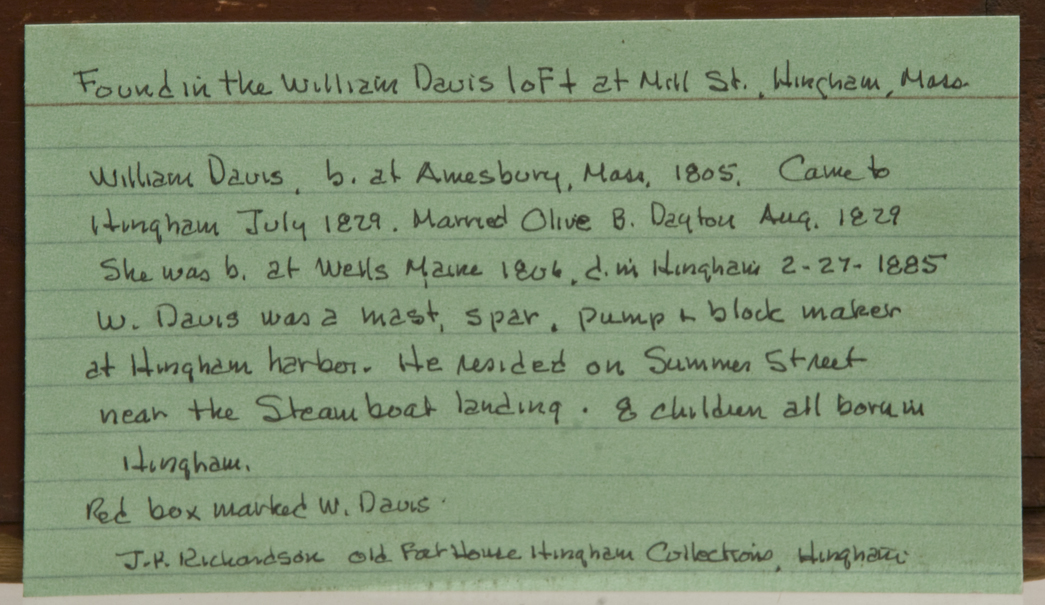 Found in the William Davis loft at Mill St., Hingham, Mass.
William Davis, b. at Amesbury, Mass, 1805. Came to
Hingham July 1829. Married Olive B. Dayton Aug. 1829
She was b. at Wells Maine 1806, d. in Hingham 2-27-1885
W. Davis was a mast, spar, pump & block maker
at Hingham harbor. He resided on Summer Street
near the Steamboat landing. 8 children all born in
Hingham.
Red box marked W. Davis.
Richardson old House Hingham Collections, Hingham